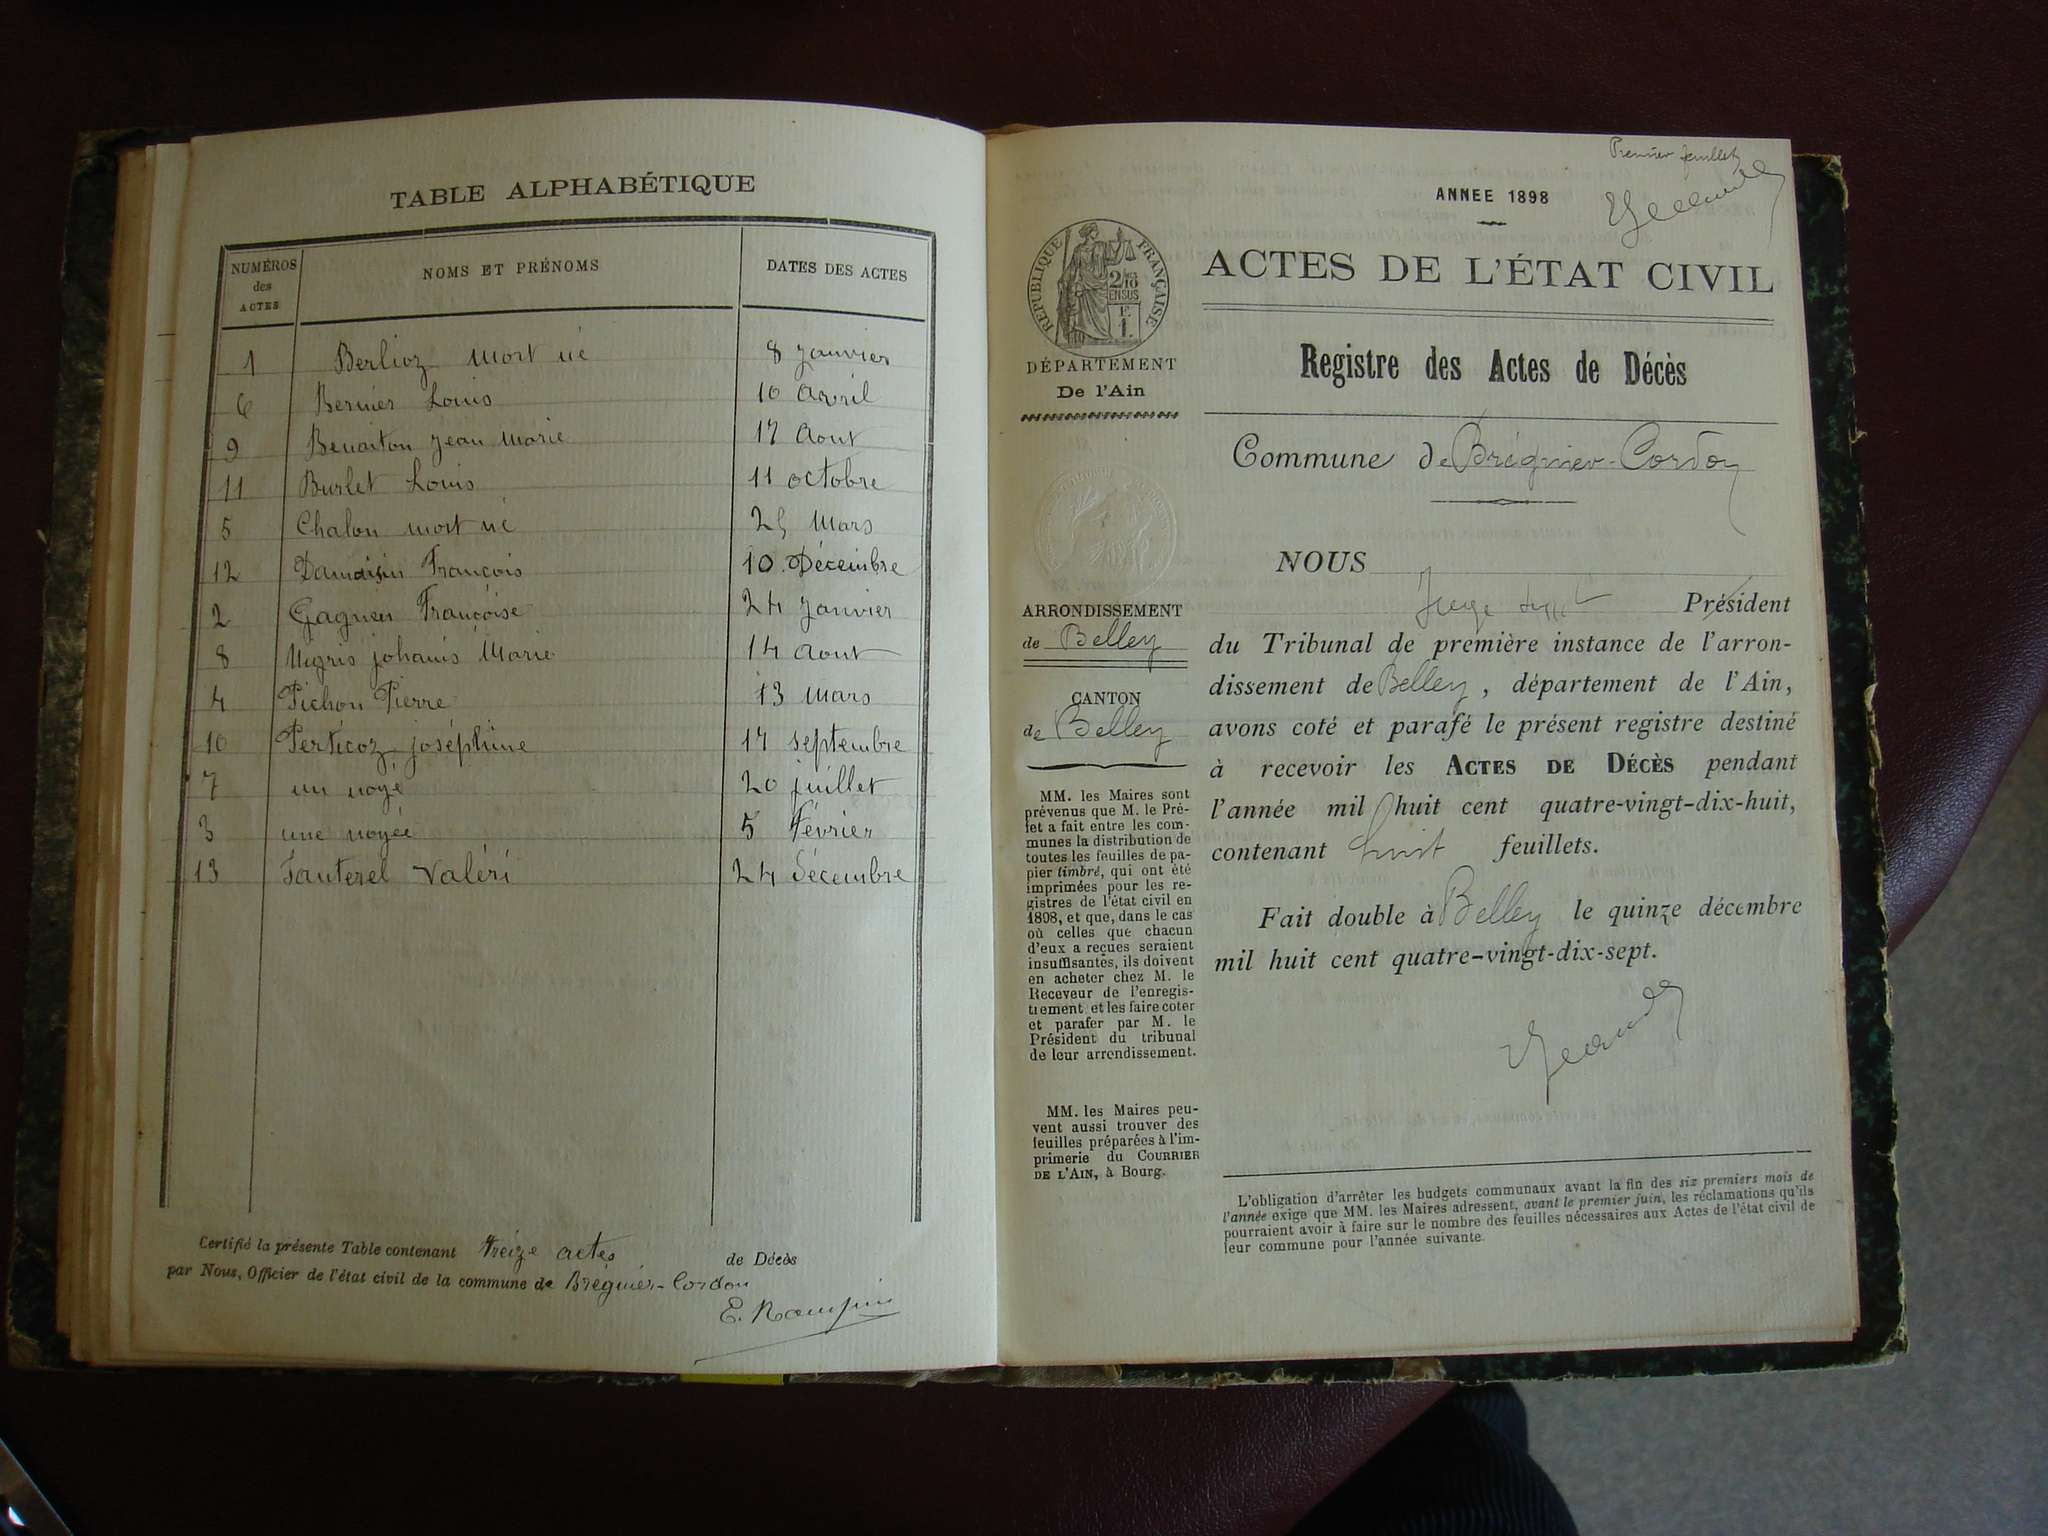 TABLE ALPHABÉTIQUE
NUMÉROS des ACTES NOMS ET PRÉNOMS DATES DES ACTES
1 Berlioz mort né 8 janvier
6 Bernier Louis 10 avril
9 Benoiton jean Marie 17 Aout
11 Burlet Louis 11 octobre
5 Chalon mort né 25 Mars
12 Damaisin François 10 Décembre
2 Gagnier Françoise 24 janvier
8 Migris johanis Marie 14 aout
4 Pichon Pierre 13 Mars
10 Perticoz joséphine 17 septembre
7 un noyé 20 juillet
3 une noyée 5 Février
13 Tauterel Valéri 24 décembre
Certifié la présente Table contenant treize actes de Décès
par Nous, Officier de l'état civil de la commune de Brégnier-Cordon
Premier feuillet
ANNEE 1898
RÉPUBLIQUE FRANÇAISE
DÉPARTEMENT
De l'Ain
ARRONDISSEMENT
de Belley
CANTON
de Belley
MM. les Maires sont
prévenus que M. le Pré-
fet a fait entre les com-
munes la distribution de
toutes les feuilles de pa-
pier timbré, qui ont été
imprimées pour les re-
gistres de l'état civil en
1898, et que, dans le cas
où celles que chacun
d'eux a reçues seraient
insuffisantes, ils doivent
en acheter chez M. le
Receveur de l'enregis-
trement et les faire coter
et parafer par M. le
Président du tribunal
de leur arrondissement.
MM. les Maires peu-
vent aussi trouver des
feuilles préparées à l'im-
primerie du COURRIER
DE L'AIN, à Bourg.
ACTES DE L'ÉTAT CIVIL
Registre des Actes de Décès
Commune de Brégnier-Cordon
NOUS
Juge suppt Président
du Tribunal de première instance de l'arron-
dissement de Belley, département de l'Ain,
avons coté et parafé le présent registre destiné
à recevoir les ACTES DE DÉCÈS pendant
l'année mil huit cent quatre-vingt-dix-huit,
contenant huit feuillets.
Fait double à Belley le quinze décembre
mil huit cent quatre-vingt-dix-sept.
L'obligation d'arrêter les budgets communaux avant la fin des six premiers mois de
l'année exige que MM. les Maires adressent, avant le premier juin, les réclamations qu'ils
pourraient avoir à faire sur le nombre des feuilles nécessaires aux Actes de l'état civil de
leur commune pour l'année suivante.